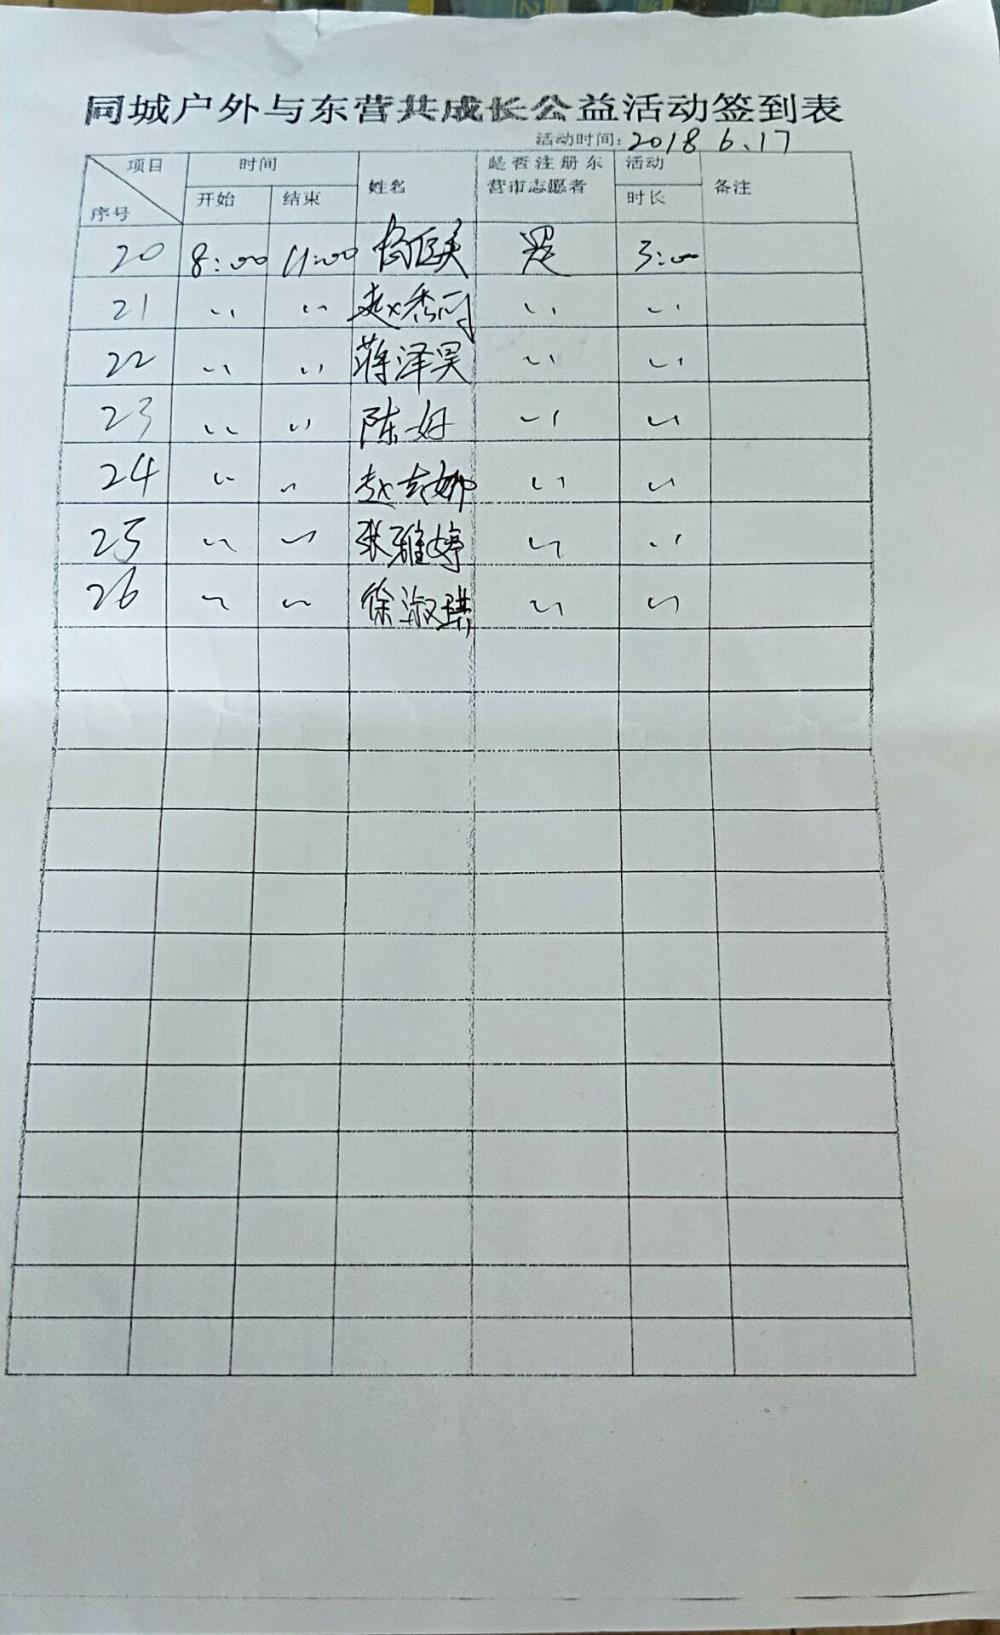 同城户外与东营共成长公益活动签到表
活动时间: 2018 6.17
项目 时间 姓名 是否注册东营市志愿者 活动时长 备注
序号 开始 结束
20 8:00 11:00 是 3:00
21 〃 〃 赵秀 〃 〃
22 〃 〃 蒋泽昊 〃 〃
23 〃 〃 陈好 〃 〃
24 〃 〃 赵 娜 〃 〃
25 〃 〃 张雅婷 〃 〃
26 〃 〃 徐淑琪 〃 〃